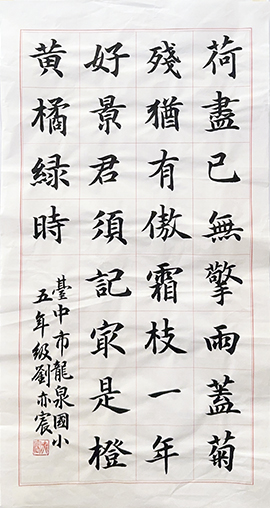 荷盡已無擎雨蓋菊
殘猶有傲霜枝一年
好景君須記冣是橙
黃橘綠時
臺中市龍泉國小
五年級劉亦宸